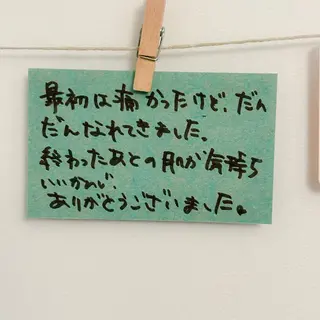 最初は痛かったけど、だん
だんなれてきました。
終わったあとの肌が気持ち
いいかんじ、
ありがとうございました。